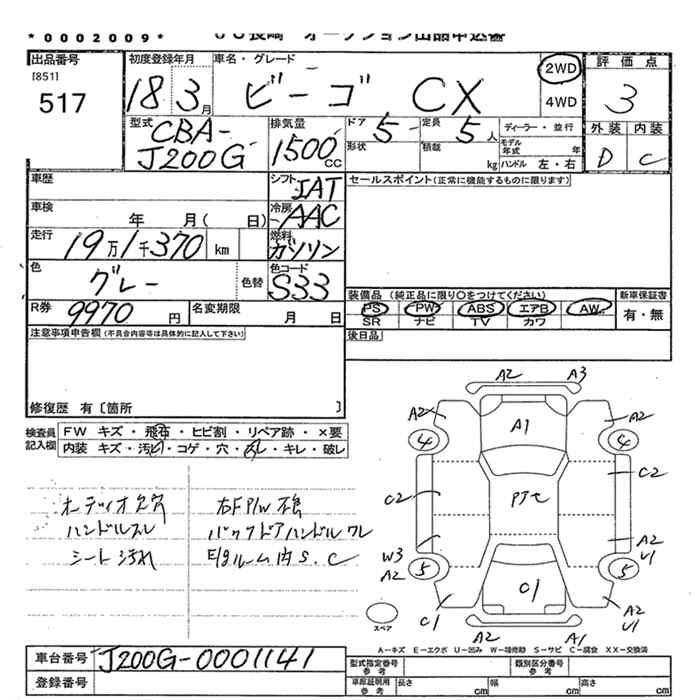 *0002009*
JU長崎 オークション出品申込書
出品番号
[851]
517
初度登録年月
18年 3月
車名・グレード
ビーゴ CX
2WD
4WD
評価点
3
外装 内装
D C
型式
CBA-
J200G
排気量
1500cc
ドア
5
形状
定員
5人
積載
kg
ディーラー・並行
モデル年式 年
ハンドル 左・右
車歴
シフト
IAT
セールスポイント(正常に機能するものに限ります)
車検
年 月( 日)
冷房
AAC
走行
19万1千370 km
燃料
ガソリン
色
グレー
色替
色コード
S33
装備品 (純正品に限り○をつけてください)
PS PW ABS エアB AW
SR ナビ TV カワ
新車保証書
有・無
R券
9970円
名変期限
月 日
注意事項申告欄(不具合内容等は具体的に記入して下さい)
後日品
修復歴 有〔箇所 〕
検査員記入欄
FW キズ・飛石・ヒビ割・リペア跡・×要
内装 キズ・汚れ・コゲ・穴・スレ・キレ・破レ
オーディオ欠穴
ハンドルスレ
シート汚れ
右F P/W 不良
バックドアハンドルワレ
E/gルーム内 S、C
A2 A3
A2 A1 A2
4 4
C2 C2
W3 A2
A2 U1
5 5
C1 C1 A2 U1
A2 A1
スペア
A-キズ E-エクボ U-凹み W-補修跡 S-サビ C-腐食 XX-交換済
車台番号
J200G-0001141
登録番号
型式指定番号 参考
類別区分番号 参考
車庫証明用 参考
長さ cm
幅 cm
高さ cm